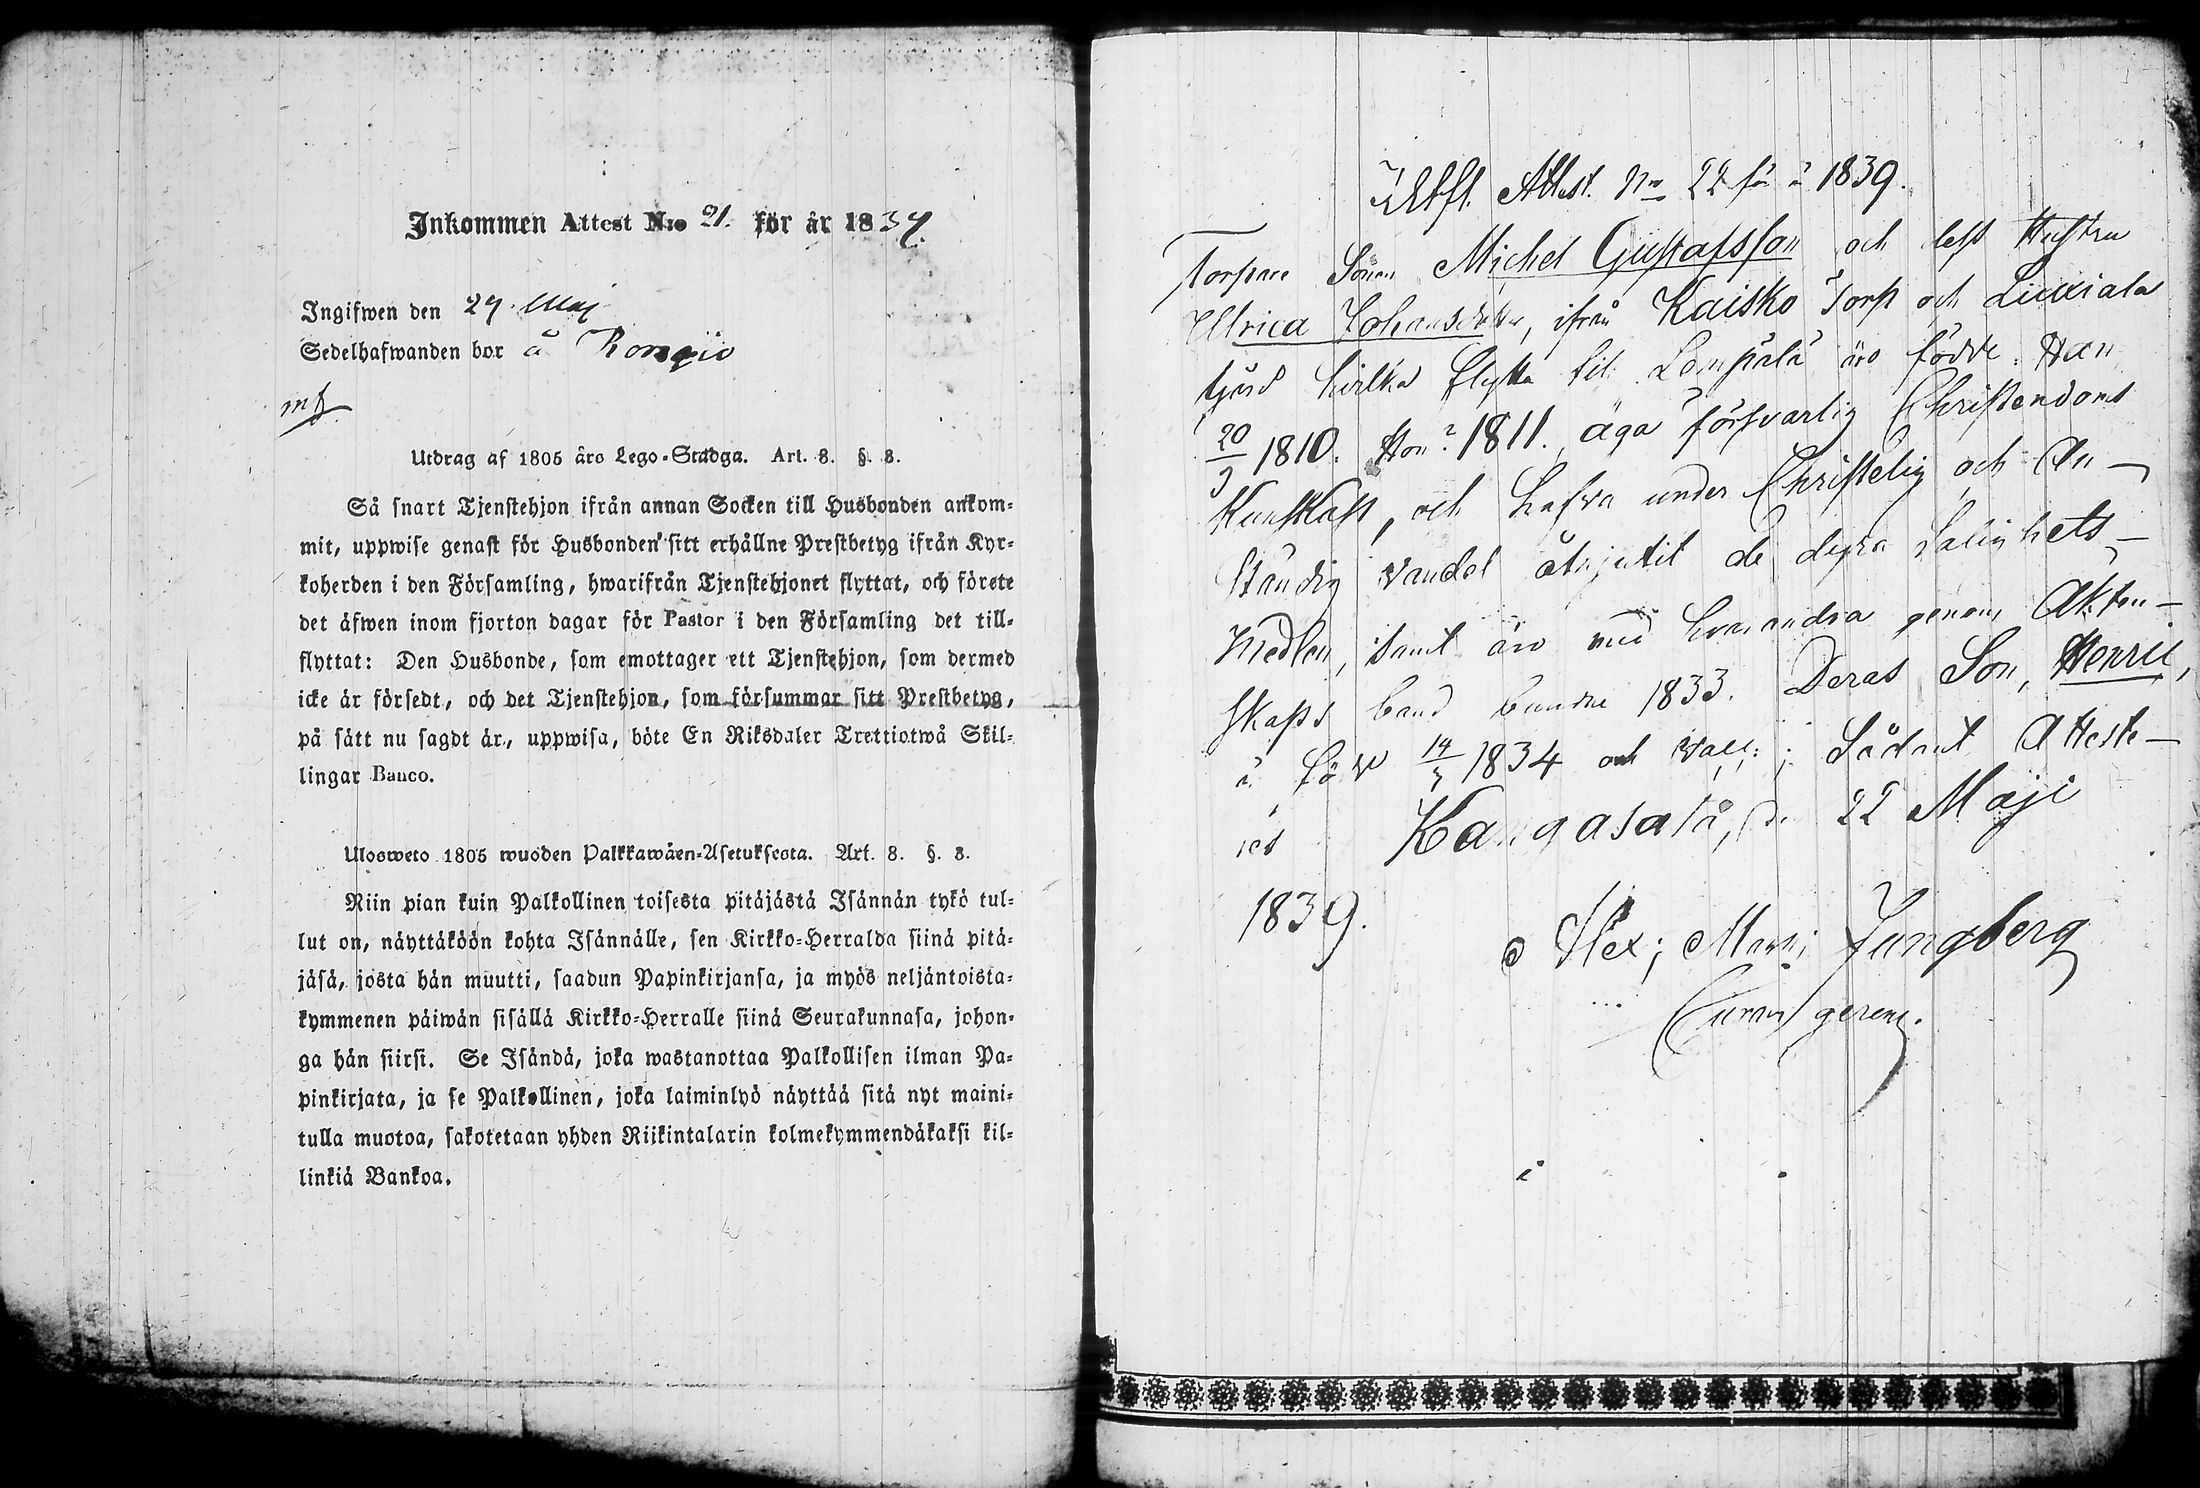 Inkommen Attest N:o 21. för år 1839.
Ingifwen den 29 Maj
Sedelhafwanden bor å
Utdrag af 1805 års Lego-Stadga. Art. 8. §. 8.
Så snart Tjenstehjon ifrån annan Socken till Husbonden ankom-
mit, uppwise genast för Husbonden sitt erhållne Prestbetyg ifrån Kyr-
koherden i den Församling, hwarifrån Tjenstehjonet flyttat, och förete
det äfwen inom fjorton dagar för Pastor i den Församling det till-
flyttat: Den Husbonde, som emottager ett Tjenstehjon, som dermed
icke är försedt, och det Tjenstehjon, som försummar sitt Prestbetyg,
på sätt nu sagdt är, uppwisa, böte En Riksdaler Trettiotwå Skil-
lingar Banco.
Ulosweto 1805 wuoden Palkkawäen-Asetuksesta. Art. 8. §. 8.
Niin pian kuin Palkollinen toisesta pitäjästä Isännän tykö tul-
lut on, näyttäköön kohta Isännälle, sen Kirkko-Herralda siinä pitä-
jäsä, josta hän muutti, saadun Papinkirjansa, ja myös neljäntoista-
kymmenen päiwän sisällä Kirkko-Herralle siinä Seurakunnasa, johon-
ga hän siirsi. Se Isändä, joka wastanottaa Palkollisen ilman Pa-
pinkirjata, ja se Palkollinen, joka laiminlyö näyttää sitä nyt maini-
tulla muotoa, sakotetaan yhden Riikintalarin kolmekymmendäkaksi kil-
linkiä Bankoa.
Utfl. Attest. No 22 för å 1839.
Torpare Sonen Michel Gustafsson och dess Hustru
Ulrica Johansdotter, ifrån Kaisko Torp och Liuxiala
hvilka flytta til Lempälä äro födde: Han
20/3 1810. Hon 1811. äga försvarlig Christendoms
Kunskap, och hafva under Christelig och An-
ständig vandel åtnjutit de dyra Salighets-
Medlen, samt äro med hvarandra genom Äkten-
skaps band bundne 1833. Deras Son, Henric,
är född 14/7 1834 och vacc: Sådant Atteste-
res Kangasala, den 22 Maji
1839.
Alex; Ljungberg
Curam gerens.